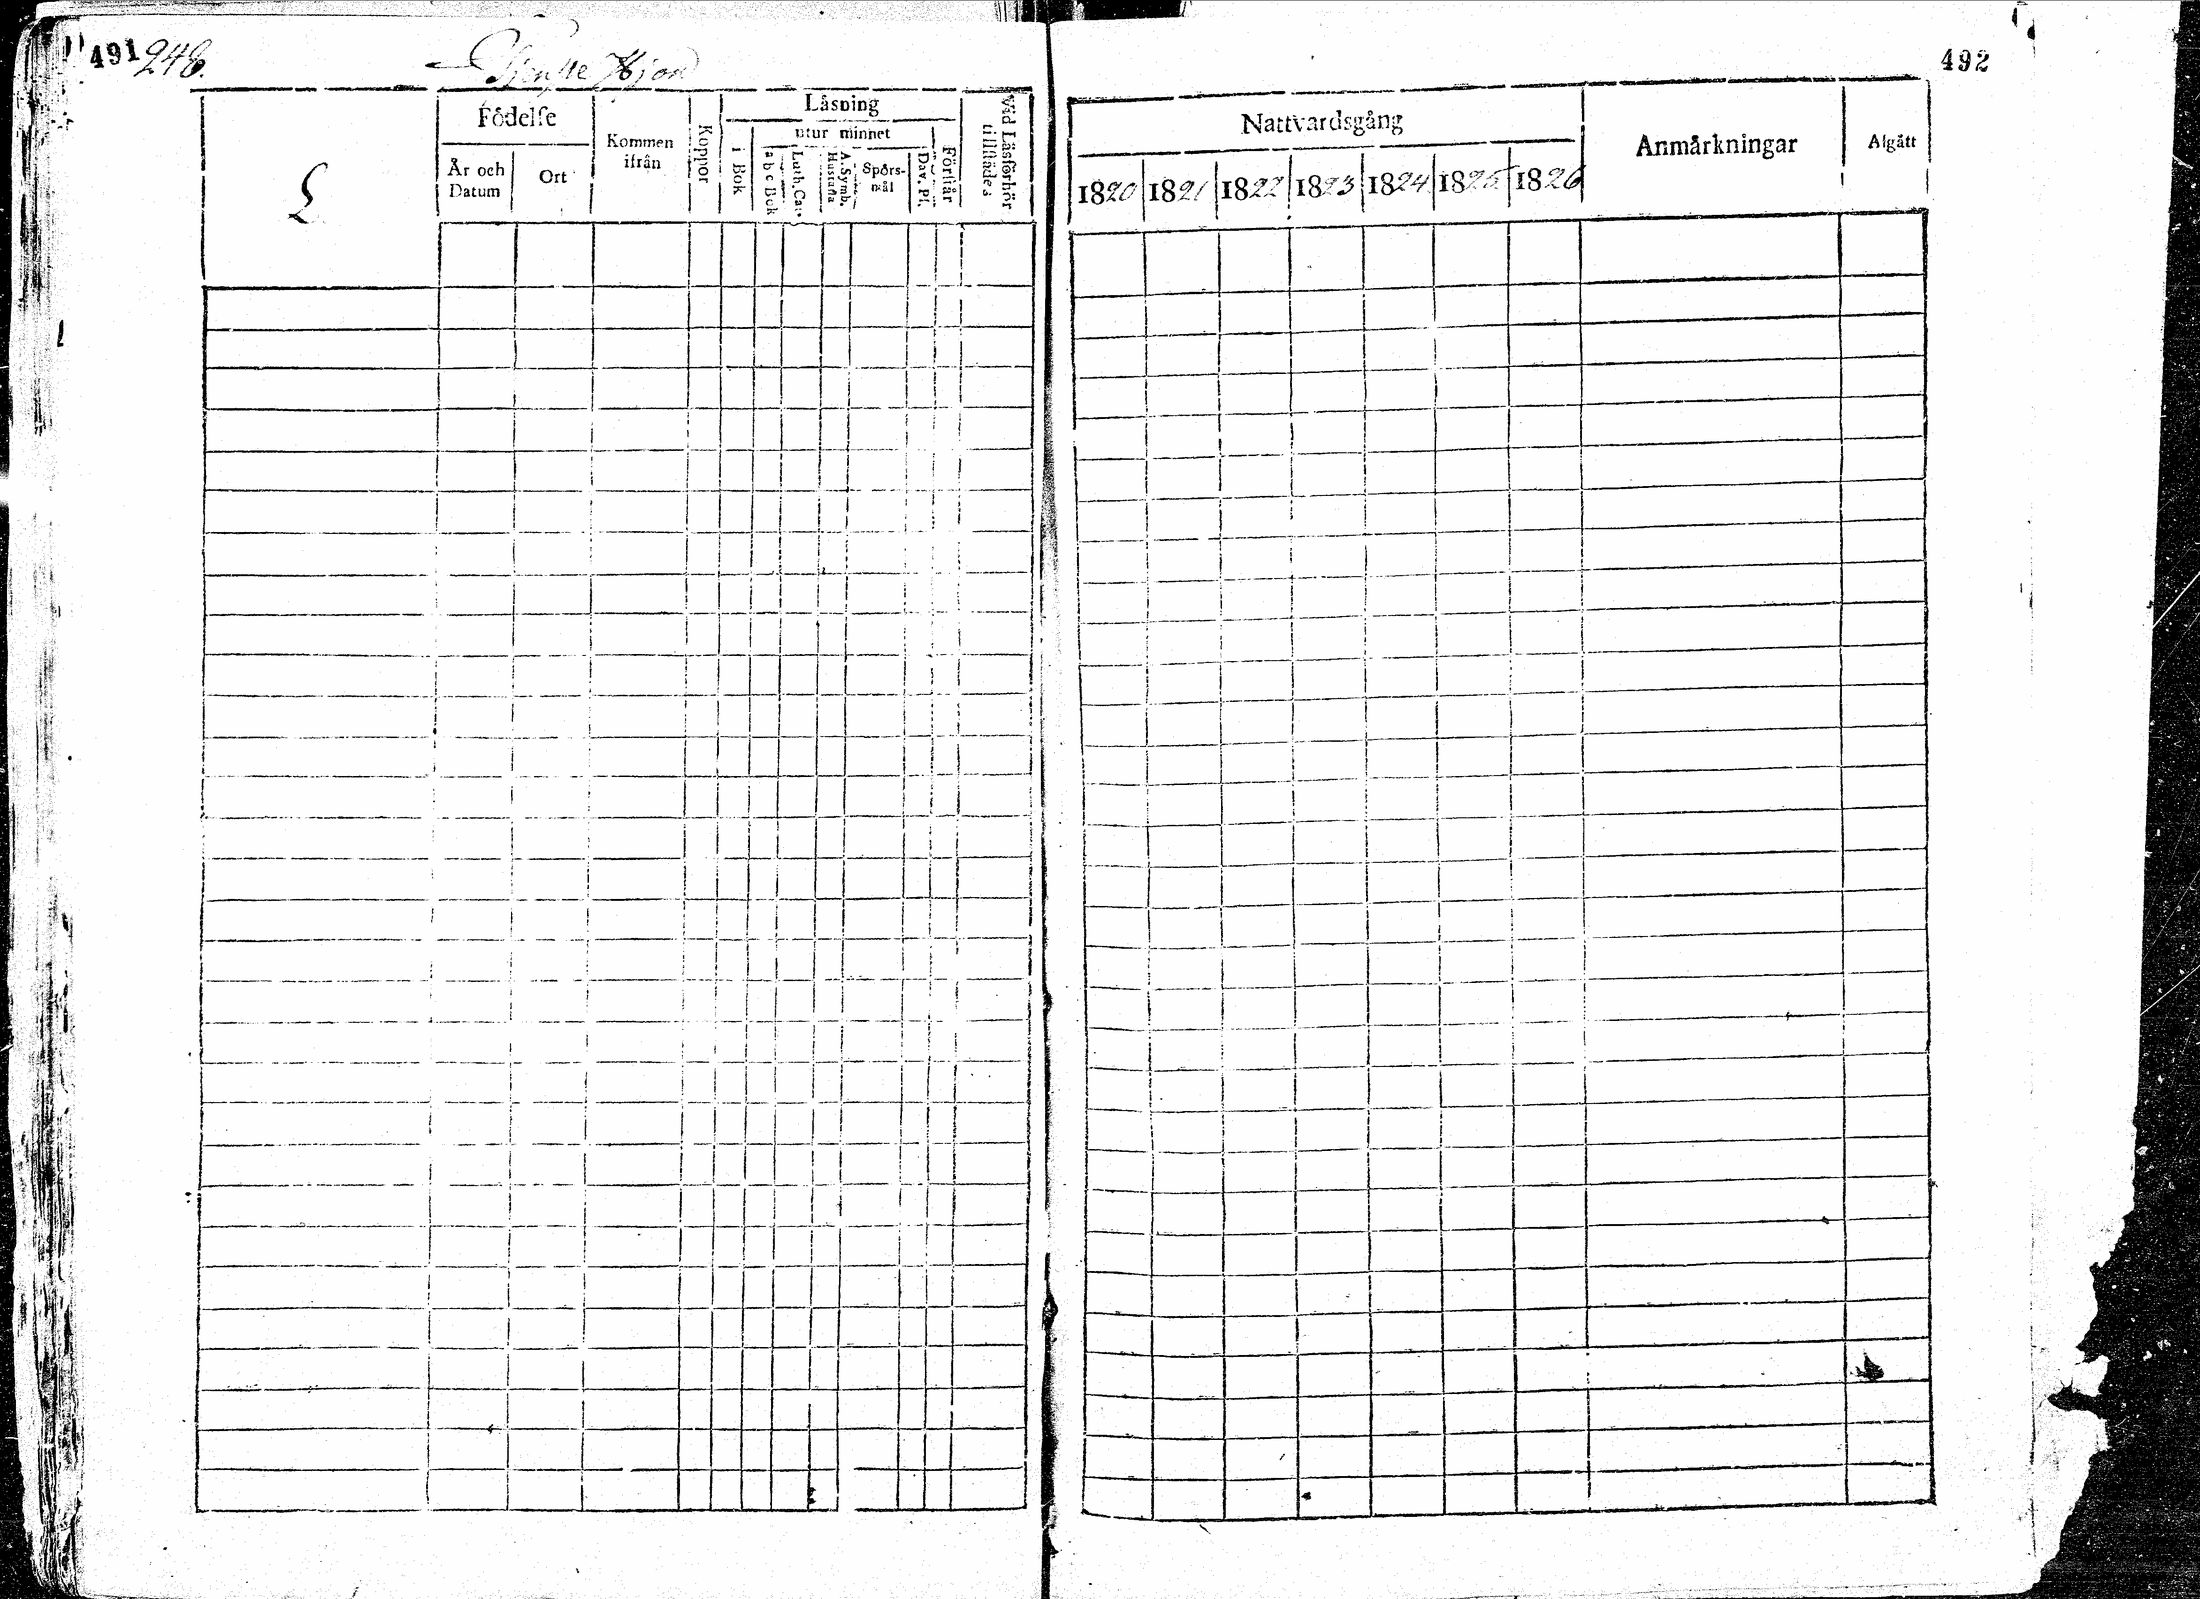 491 248.
Tjenste Hjon
L
Fôdelse
År och Datum
Ort
Kommen ifrån
Koppor
Låsning
i Bok
utur minnet
a b c Bok
Luth. Cat.
A. Symb. Hustafla
Spôrsmål
Dav. Ps.
Förstår
Vid Läsförhör tillstådes
492
Nattvardsgång
1820 1821 1822 1823 1824 1825 1826
Anmårkningar
Afgått